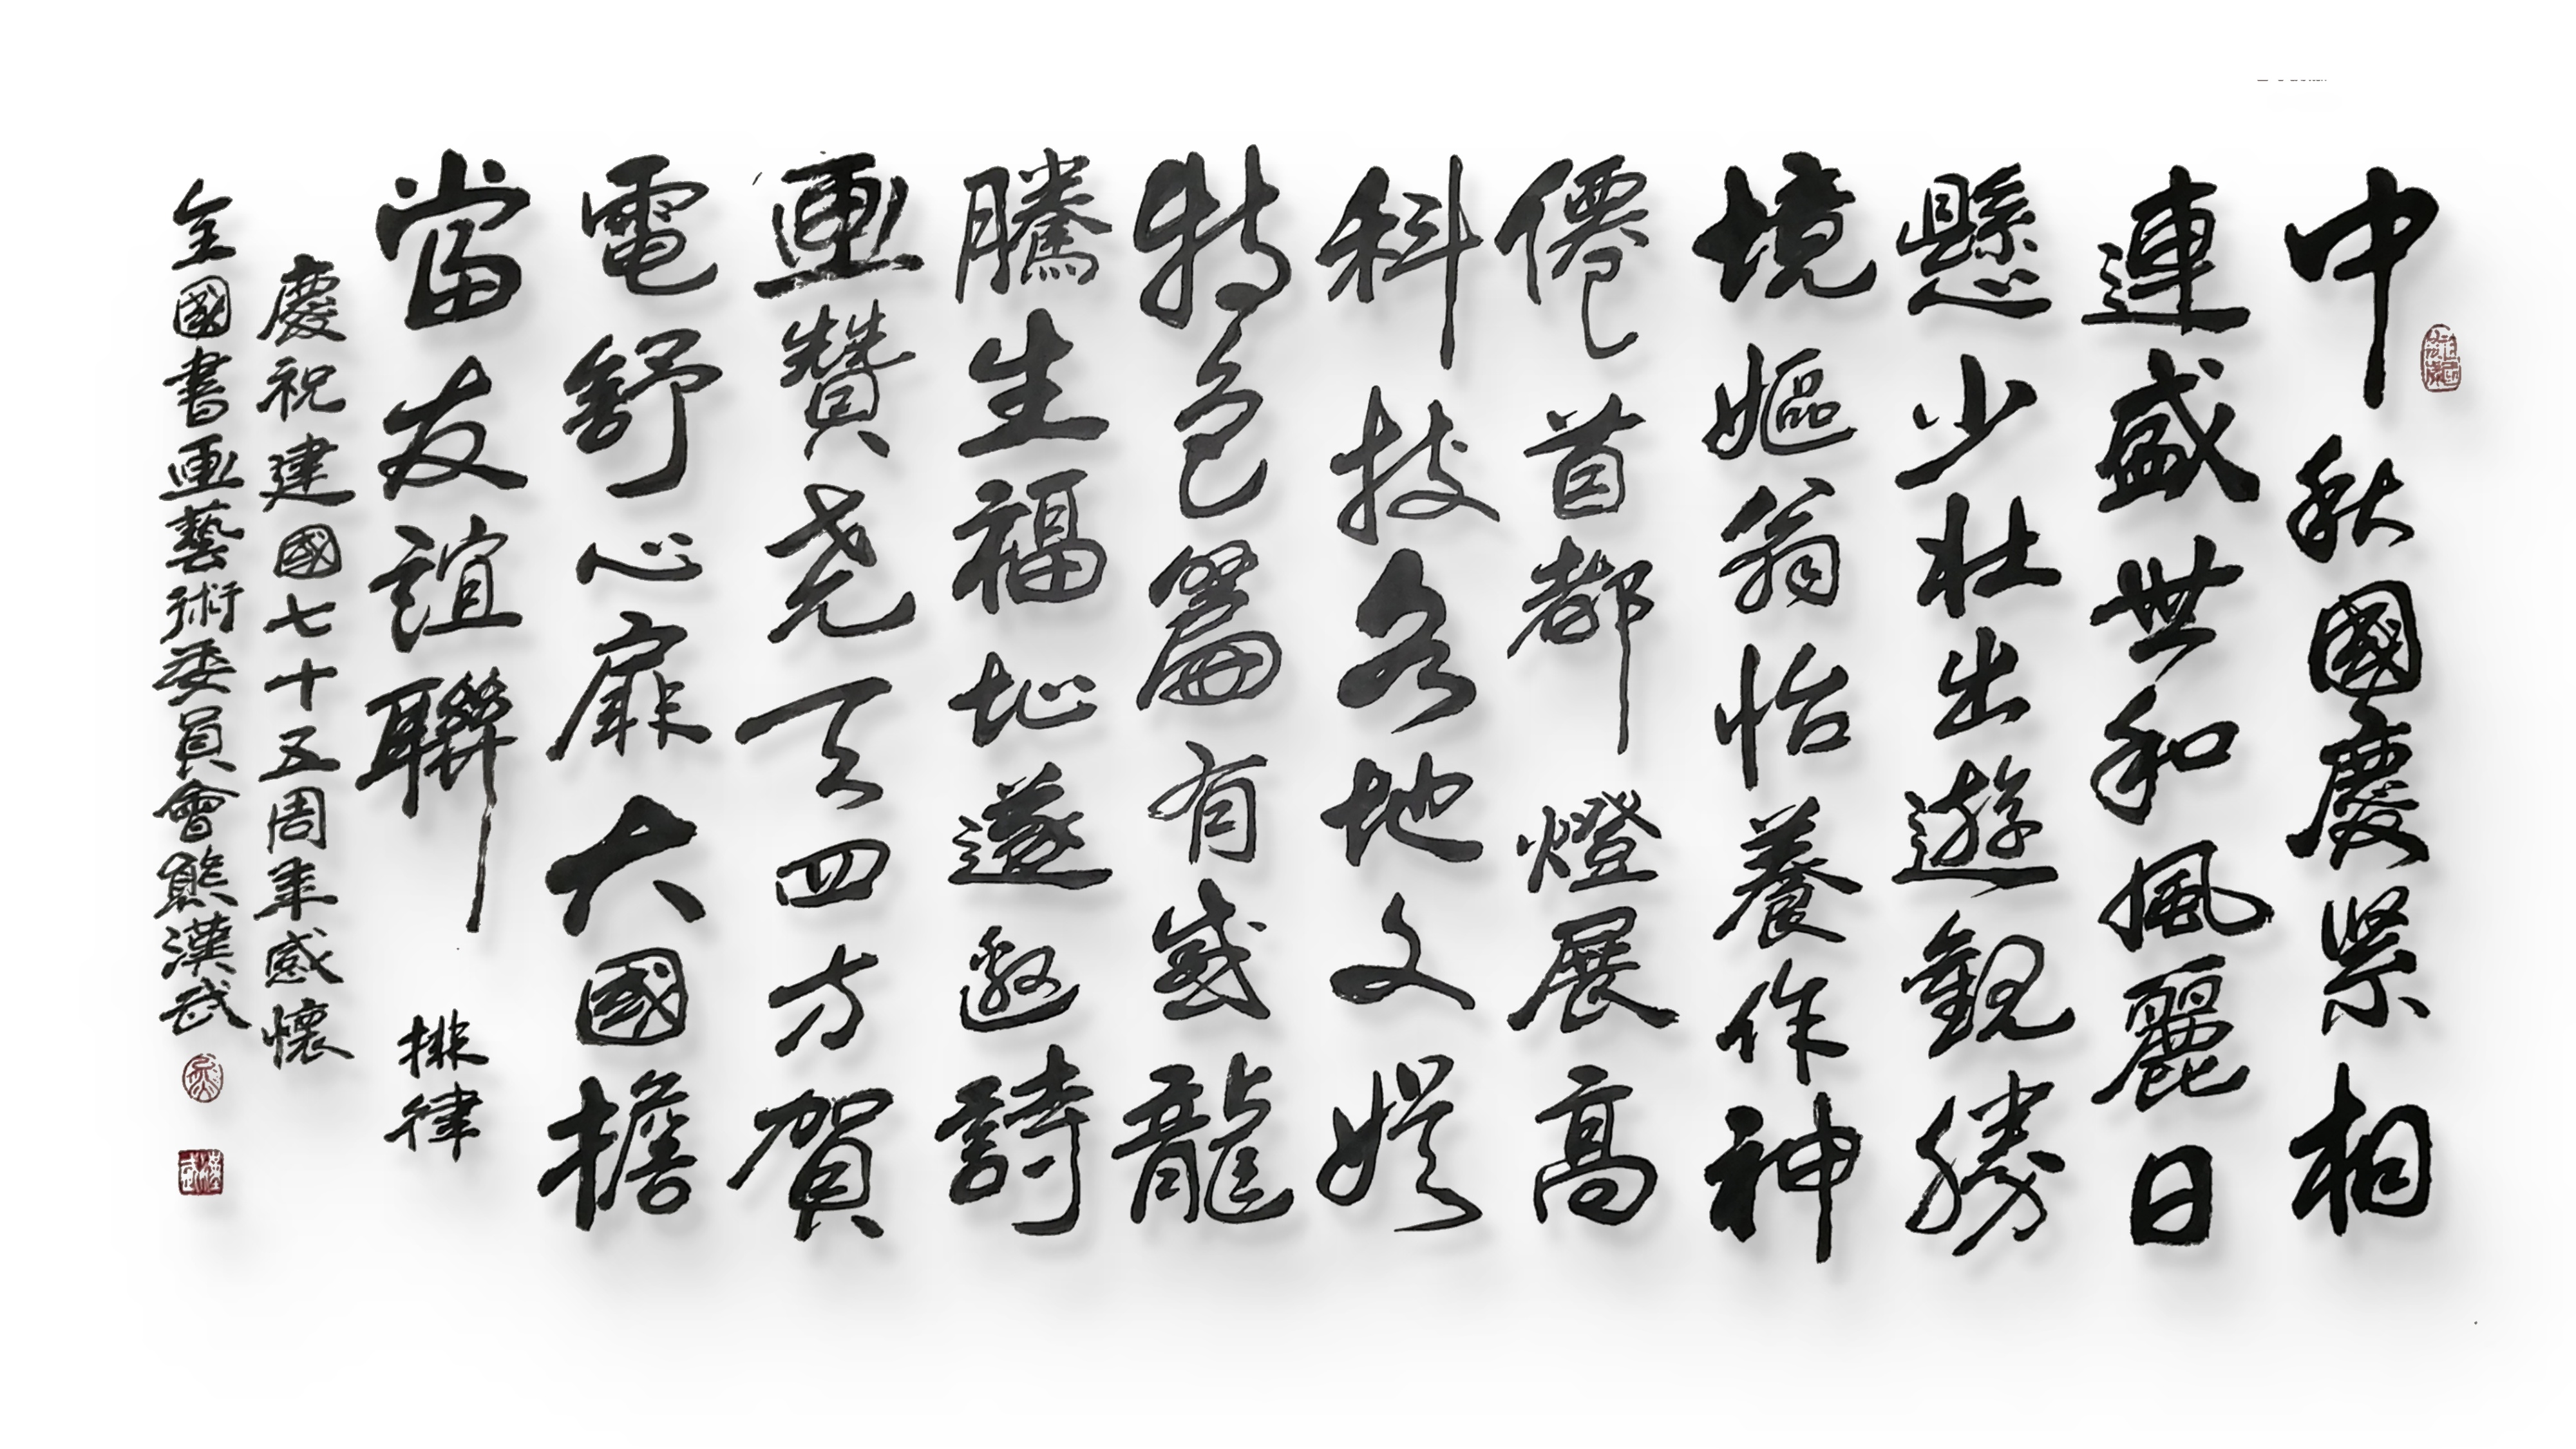 中秋國慶緊相
連盛世和風麗日
懸少壯出遊觀勝
境嫗翁怡養作神
僊首都燈展高
科技各地文娛
特色篇有感龍
騰生福地遂邀詩
畫贊堯天四方賀
電舒心扉大國擔
當友誼聯
排律
慶祝建國七十五周年感懷
全國書畫藝術委員會熊漢武
漢武